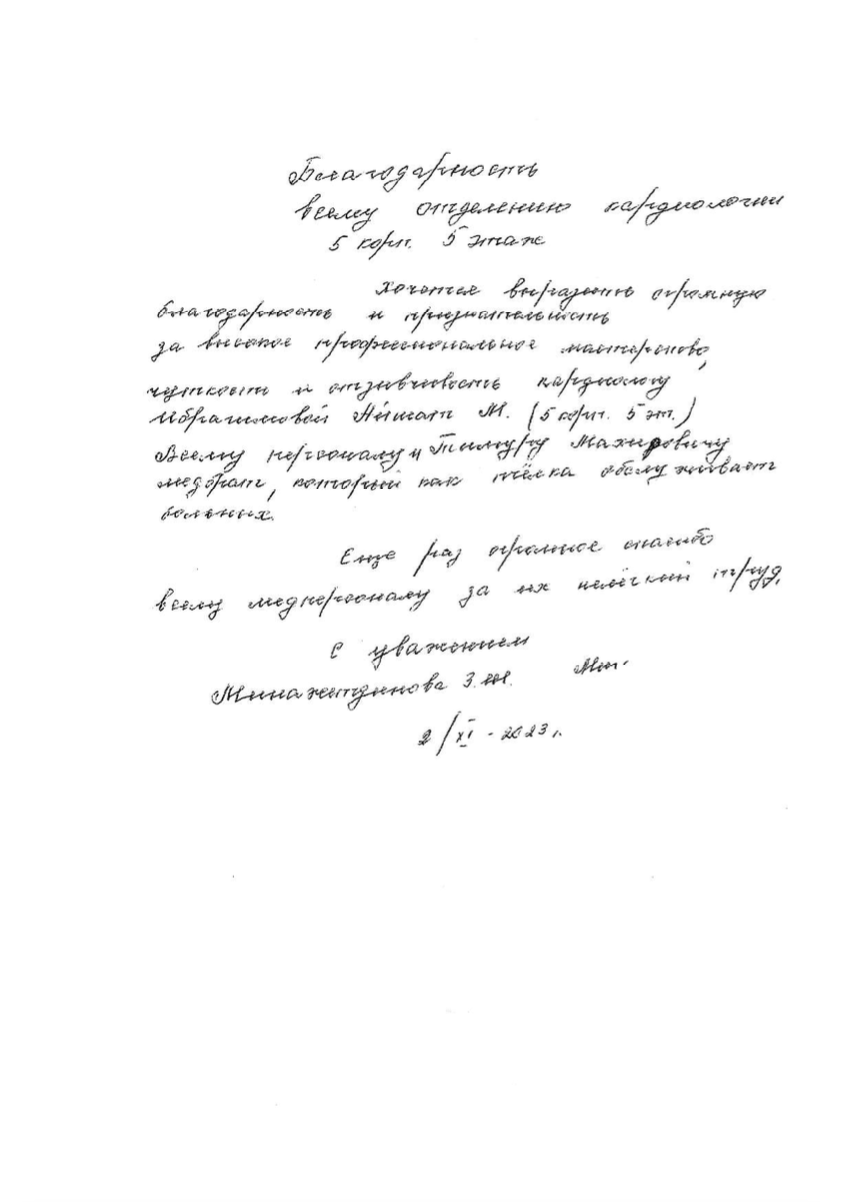 Благодарность
всему отделению кардиологии
5 корп. 5 этаж
Хочется выразить огромную
благодарность и признательность
за высокое профессиональное мастерство,
чуткость и отзывчивость кардиологу
Ибрагимовой М. (5 корп. 5 эт.)
Всему персоналу и Тимуру Махировичу
медбрат, который как пчёлка обслуживает
больных.
Еще раз огромное спасибо
всему медперсоналу за их нелёгкий труд.
С уважением
Минажетдинова З.Ш.
2/XI - 2023 г.